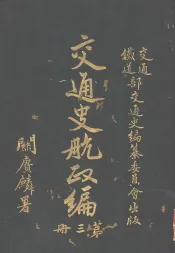 交通
鐵道部交通史編纂委員會出版
交通史航政編
第三册
關賡麟署